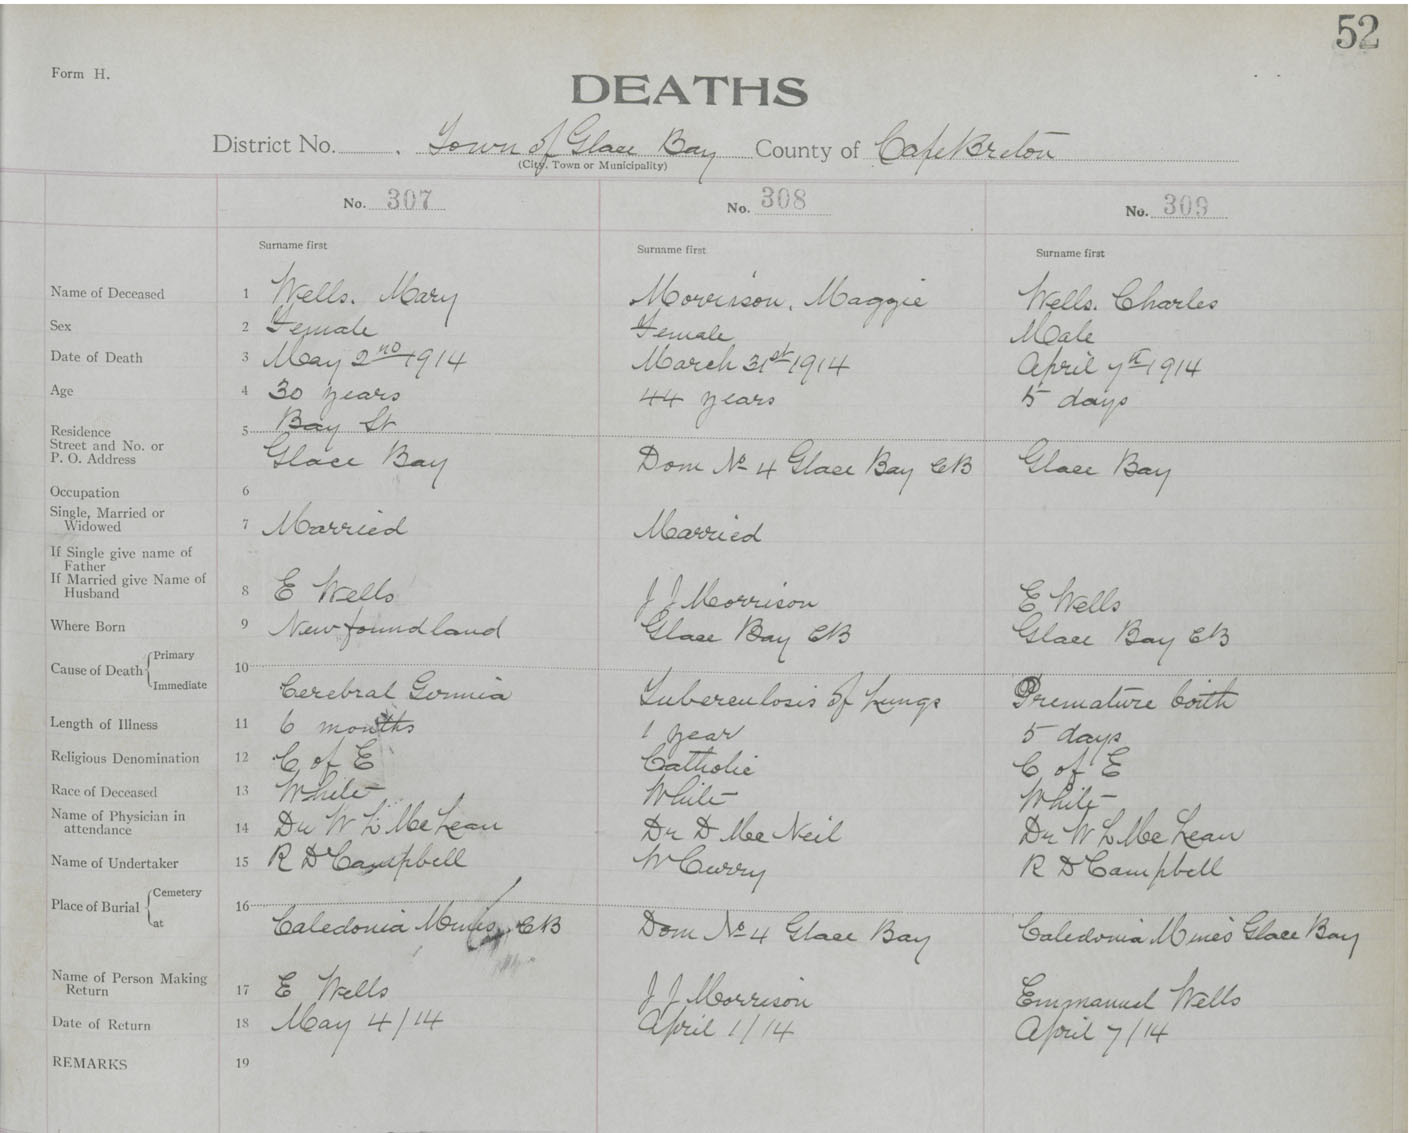 52
Form H.
DEATHS
District No. . Town of Glace Bay County of Cape Breton
(City, Town or Municipality)
No. 307 No. 308 No. 309
Surname first Surname first Surname first
Name of Deceased 1 Wells. Mary Morrison, Maggie Wells. Charles
Sex 2 Female Female Male
Date of Death 3 May 2nd 1914 March 31st 1914 April 7th 1914
Age 4 30 years 44 years 5 days
Residence 5 Bay St
Street and No. or
P. O. Address Glace Bay Dom No 4 Glace Bay CB Glace Bay
Occupation 6
Single, Married or
Widowed 7 Married Married
If Single give name of
Father
If Married give Name of
Husband 8 E Wells J J Morrison E Wells
Where Born 9 Newfoundland Glace Bay CB Glace Bay CB
Cause of Death Primary 10
Immediate Cerebral Gomia Tuberculosis of Lungs Premature birth
Length of Illness 11 6 months 1 year 5 days
Religious Denomination 12 C of E Catholic C of E
Race of Deceased 13 White White White
Name of Physician in
attendance 14 Dr W L McLean Dr D McNeil Dr W L McLean
Name of Undertaker 15 R D Campbell W Curry R D Campbell
Place of Burial Cemetery 16
at Caledonia Mines, CB Dom No 4 Glace Bay Caledonia Mines Glace Bay
Name of Person Making
Return 17 E Wells J J Morrison Emmanuel Wells
Date of Return 18 May 4/14 April 1/14 April 7/14
REMARKS 19